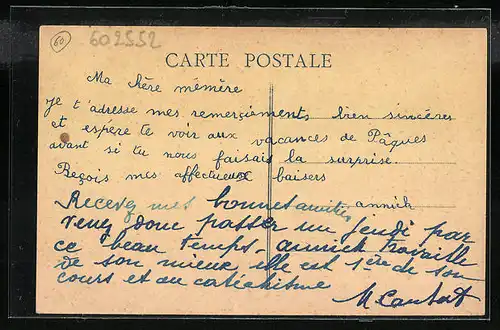 60
602552
CARTE POSTALE
Ma chère mémère
Je t'adresse mes remerciements bien sincères
et espère te voir aux vacances de Pâques
avant si tu nous faisais la surprise.
Reçois mes affectueux baisers
annick
Recevez mes bonnes amitiés
Venez donc passer un jeudi par
ce beau temps - annick travaille
de son mieux, elle est 1ère de son
cours et au catéchisme